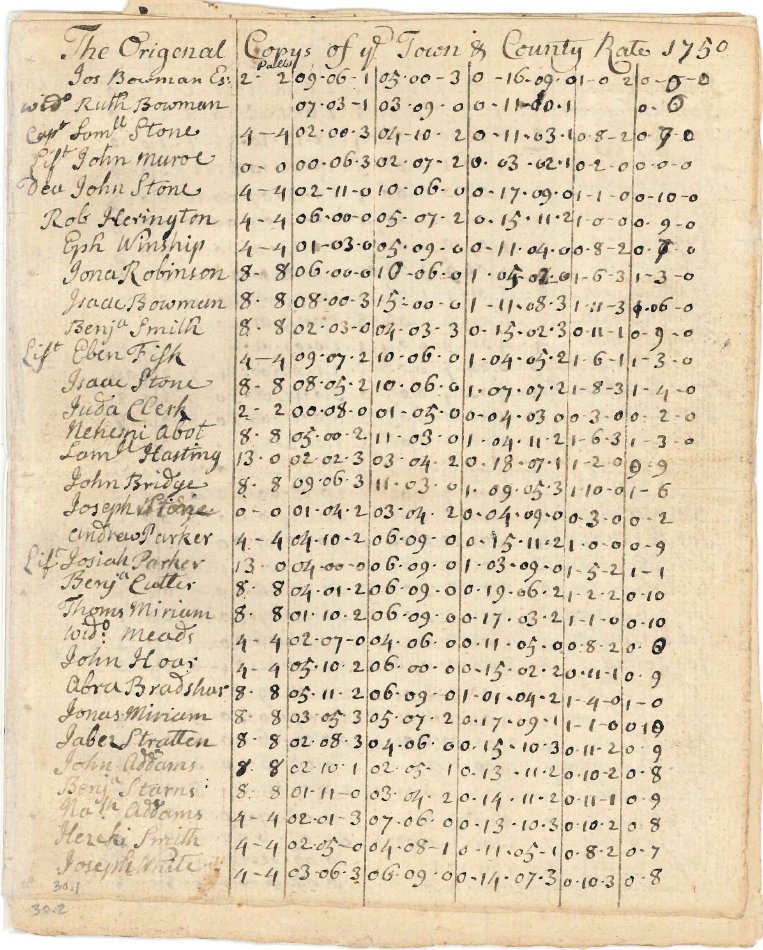 The Origenal Copys of yᵉ Town & County Rate 1750
Pales
Jos Bowman Esː 2 - 2 09-06-1 05-00-3 0-16-09-0 1-0 2 0-0-0
widᵒ Ruth Bowman 07-03-1 03-09-0 0-11-10-1 0-6
Capᵗ Samˡˡ Stone 4-4 02-00-3 04-10-2 0-11-03-1 0-8-2 0-7-0
Lifᵗ John Muroe 0-0 00-06-3 02-07-2 0-03-02-1 0-2-0 0-0-0
Dea John Stone 4-4 02-11-0 10-06-0 0-17-09-0 1-1-0 0-10-0
Rob Herington 4-4 06-00-0 05-07-2 0-15-11-2 1-0-0 0-9-0
Eph Winship 4-4 01-03-0 05-09-0 0-11-04-0 0-8-2 0-7-0
Jona Robinson 8-8 06-00-0 10-06-0 1-05-02-0 1-6-3 1-3-0
Isaac Bowman 8-8 08-00-3 15-00-0 1-11-08-3 1-11-3 1-06-0
Benjᵃ Smith 8-8 02-03-0 04-03-3 0-15-02-3 0-11-1 0-9-0
Lifᵗ Eben Fisk 4-4 09-07-2 10-06-0 1-04-05-2 1-6-1 1-3-0
Isaac Stone 8-8 08-05-2 10-06-0 1-07-07-2 1-8-3 1-4-0
Juda Clerk 2-2 00-08-0 01-05-0 0-04-03-0 0-3-0 0-2-0
Nehemi Abot 8-8 05-00-2 11-03-0 1-04-11-2 1-6-3 1-3-0
Samˡˡ Hasting 13-0 02-02-3 03-04-2 0-18-07-1 1-2-0 0-9
John Bridge 8-8 09-06-3 11-03-0 1-09-05-3 1-10-0 1-6
Joseph 0-0 01-04-2 03-04-2 0-04-09-0 0-3-0 0-2
Andrew Parker 4-4 04-10-2 06-09-0 0-15-11-2 1-0-0 0-9
Lifᵗ Josiah Parker 13-0 04-00-0 06-09-0 1-03-09-0 1-5-2 1-1
Benjᵃ Cutter 8-8 04-01-2 06-09-0 0-19-06-2 1-2-2 0-10
Thoms Miriam 8-8 01-10-2 06-09-0 0-17-03-2 1-1-0 0-10
widᵒ: Meads 4-4 02-07-0 04-06-0 0-11-05-0 0-8-2 0-6
John Hoar 4-4 05-10-2 06-00-0 0-15-02-2 0-11-1 0-9
Abra Bradshar 8-8 05-11-2 06-09-0 1-01-04-2 1-4-0 1-0
Jonas Miriam 8-8 03-05-3 05-07-2 0-17-09-1 1-1-0 0-10
Jabez Stratten 8-8 02-08-3 04-06-0 0-15-10-3 0-11-2 0-9
John Addams 8-8 02-10-1 02-05-1 0-13-11-2 0-10-2 0-8
Benjᵃ Starns 8-8 01-11-0 03-04-2 0-14-11-2 0-11-1 0-9
Naᵗʰ Addams 4-4 02-01-3 07-06-0 0-13-10-3 0-10-2 0-8
Hezeki Smith 4-4 02-05-0 04-08-1 0-11-05-1 0-8-2 0-7
Joseph White 4-4 03-06-3 06-09-0 0-14-07-3 0-10-3 0-8
30.1
30.2